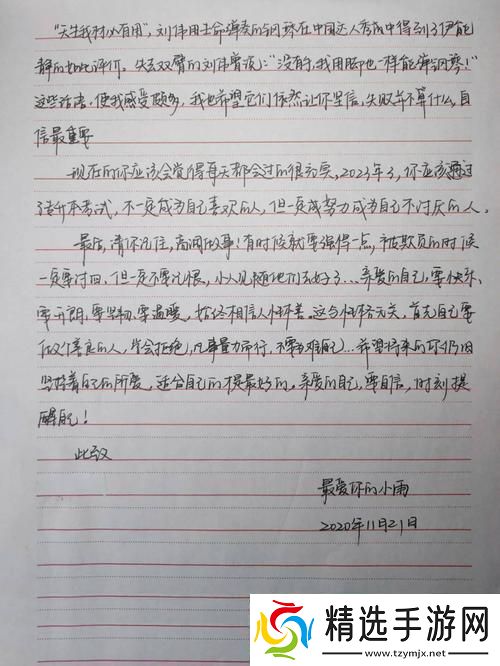 "天生我材必有用"，刘伟用生命弹奏的钢琴在中国达人秀中得到了伊能
静的如此评价。失去双臂的刘伟曾说："没有手，我用脚也一样能弹钢琴！"
这些话语，使我感受颇多，我也希望它们依然让你坚信，失败并不算什么，自
信最重要
现在的你应该会觉得每天都会过的很充实，2023年了，你应该通过
专升本考试，不一定成为自己喜欢的人，但一定成努力成为自己不讨厌的人。
最后，请你记住，高调做事！有时候就要强得一点，被欺负的时候
一定要讨回，但一定不要记恨，小人见随他们去好了…亲爱的自己，要快乐、
要开朗、要坚韧、要温暖，始终相信人性本善。这与性格无关，首先自己要
做个善良的人，学会拒绝，凡事量力而行，不要为难自己…希望将来的你仍旧
坚持着自己的所爱，适合自己的才是最好的。亲爱的自己，要自信，时刻提
醒自己！
此致
最爱你的小雨
2020年11月21日
精选手游网
www.tzymjx.net